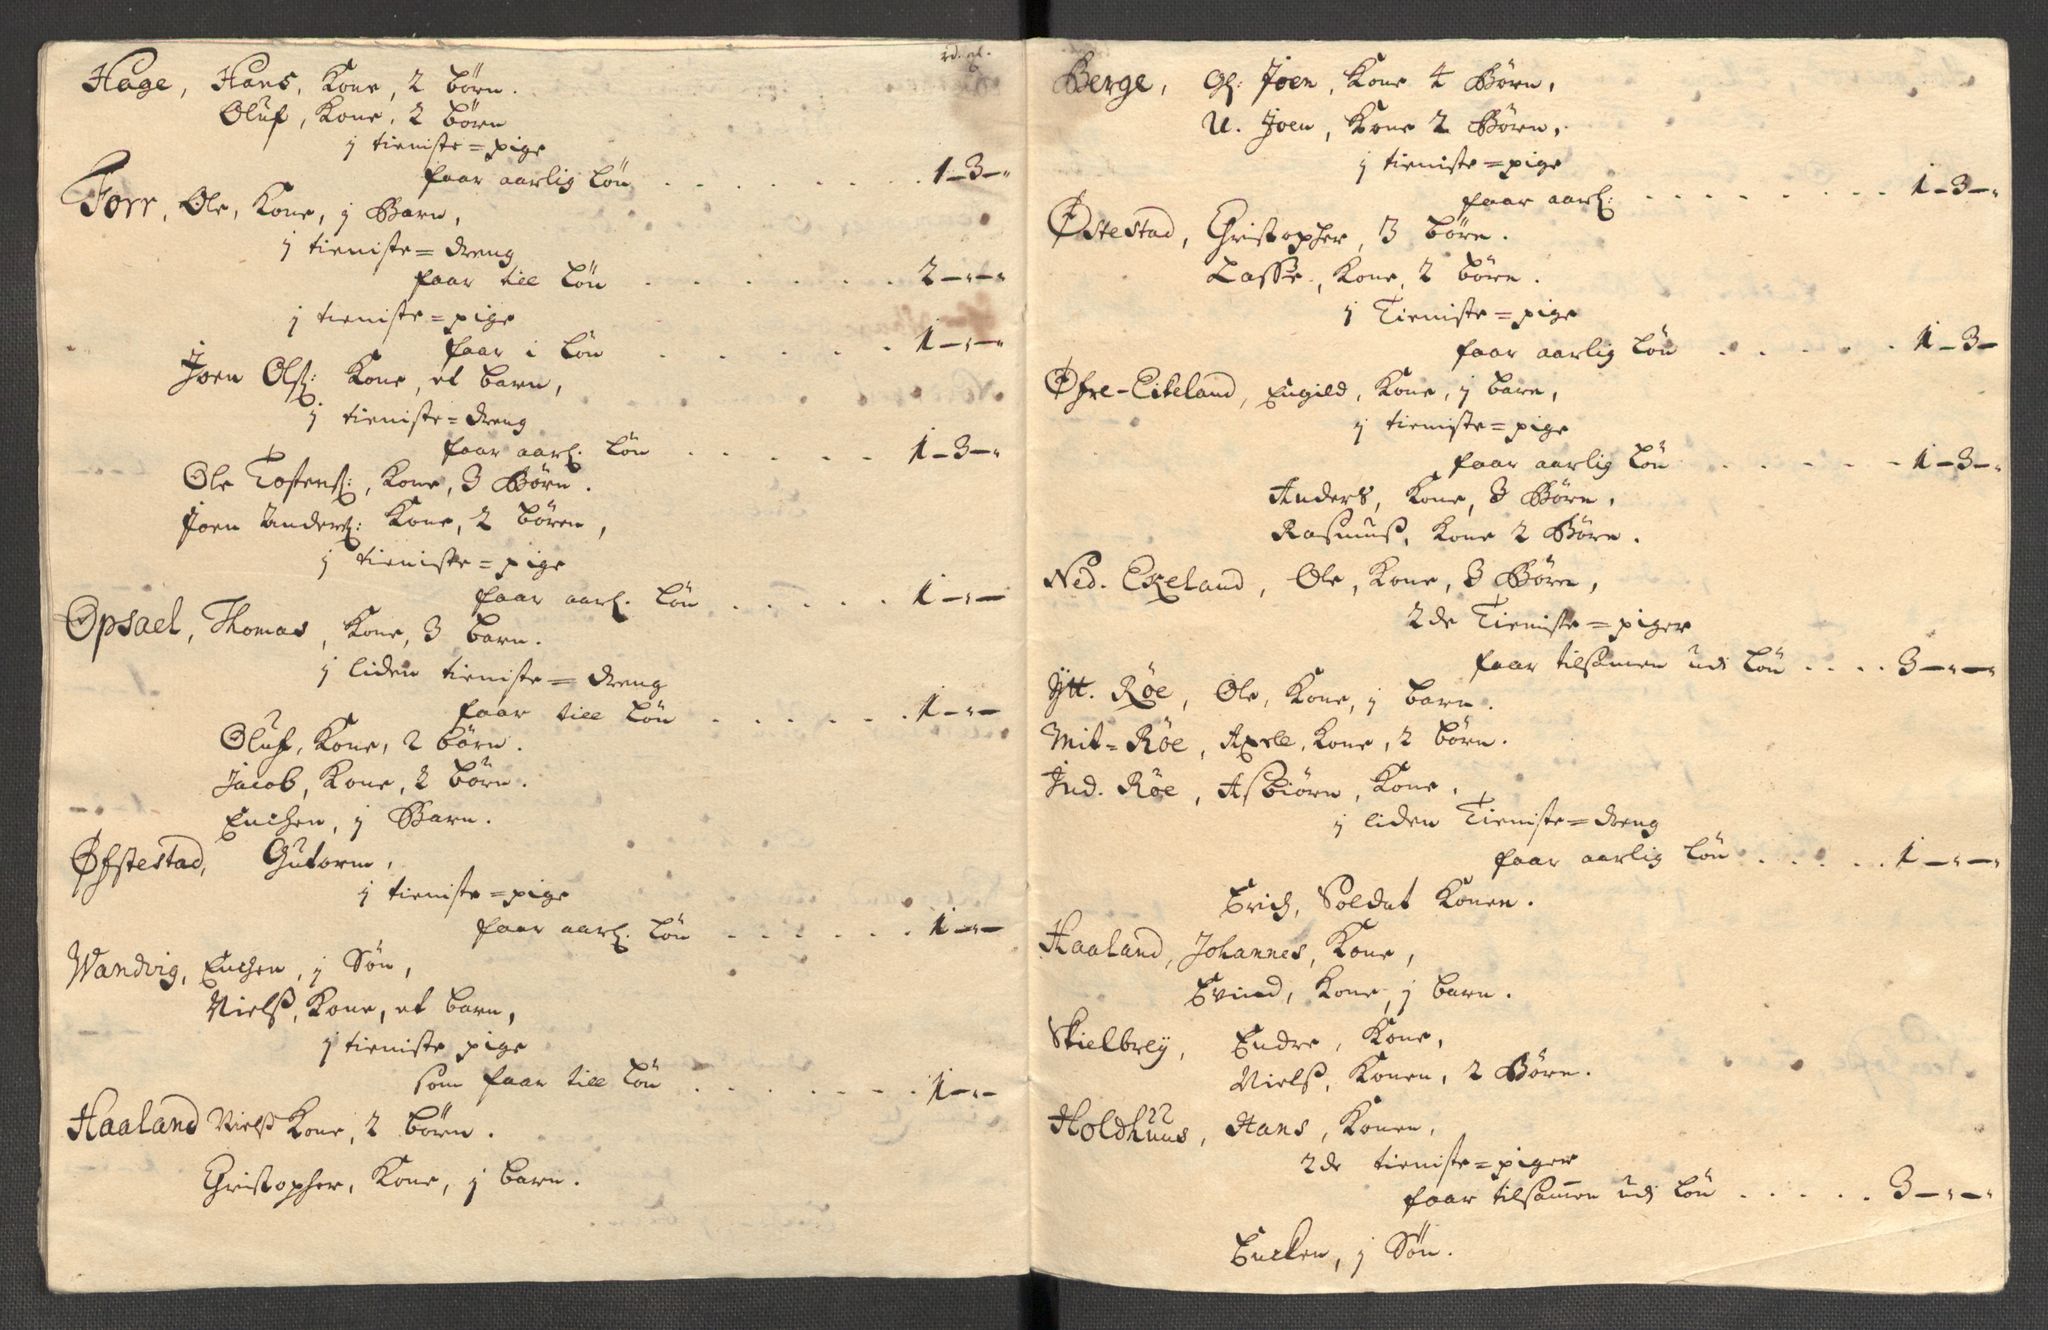 rd. ort. ß
Hage, Hans, Kone, 2 börn.
Oluf, Kone, 2 börn
j tieniste=pige
faar aarlig Lön . . . . . . . . 1-3-"
Torr, Ole, Kone, j Barn,
j tieniste=dreng
faar till Lön . . . . . . . 2-"-"
j tieniste=pige
faar i Lön . . . . . . 1-"-
Joen Olss: Kone, et barn,
j tieniste=dreng
faar aarl. Lön . . . . . 1-3-"
Ole Tostens:, Kone, 3 Börn.
Joen Anders: Kone, 2 Börn,
j tieniste=pige
faar aarl. Lön . . . . . 1-"-
Opsael, Thomas, Kone, 3 barn.
j liden tieniste=dreng
faar till Lön . . . . . . 1-"-
Oluf, Kone, 2 börn.
Jacob, Kone, 2 börn.
Enchen, j Barn.
Øfstestad, Gutorm,
j tieniste=pige
faar aarl. Lön . . . . . . 1-"-
Wandvig, Enchen, j Søn,
Nielß, Kone, et barn,
j tieniste pige
som faar till Lön . . . . . . . 1-"-
Haaland Nielß Kone, 2 börn.
Christopher, Kone, j barn.
Berge, Gl: Joen, Kone 4 Börn,
U. Joen, Kone 2 Börn,
j tieniste=pige
faar aarl: . . . . . . . . . 1-3-"
Østestad, Christopher, 3 börn.
Lasse, Kone, 2 börn.
j Tieniste=pige
faar aarlig Lön . . . . . 1-3-
Øfre-Eikeland, Engild, Kone, j barn,
j tieniste=pige
faar aarlig Lön . . . . . 1-3-"
Anders, Kone, 3 Börn,
Rasmuß, Kone 2 Börn.
Ned. Ekeland, Ole, Kone, 3 Börn,
2de Tieniste=piger
faar tilsamen udi Lön . . . . 3-"-"
Ytt. Røe, Ole, Kone, j barn.
Mit=Røe, Axell, Kone, 2 börn.
Ind. Røe, Asbiörn, Kone,
j liden Tieniste=dreng
faar aarlig Lön . . . . . 1-"-"
Erich, Soldat Konen.
Haaland, Johannes, Kone,
Evind, Kone, j barn.
Skielbrey, Endre, Kone,
Nielß, Konen, 2 Börn.
Holdhuus, Hans, Konen,
2de tieniste=piger
faar tilsammen udi Lön . . . . . 3-"-"
Encken, j Søn.